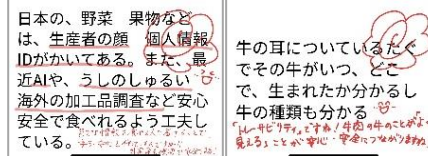 日本の、野菜　果物など
は、生産者の顔　個人情報
IDがかいてある。また、最
近AIや、うしのしゅるい
海外の加工品調査など安心
安全で食べれるよう工夫し
ている。
牛の耳についているたぐ
でその牛がいつ、どこ
で、生まれたか分かるし
牛の種類も分かる
「トレーサビリティ」ですね！牛肉の牛のことがよく
見えることが安心・安全につながりますね